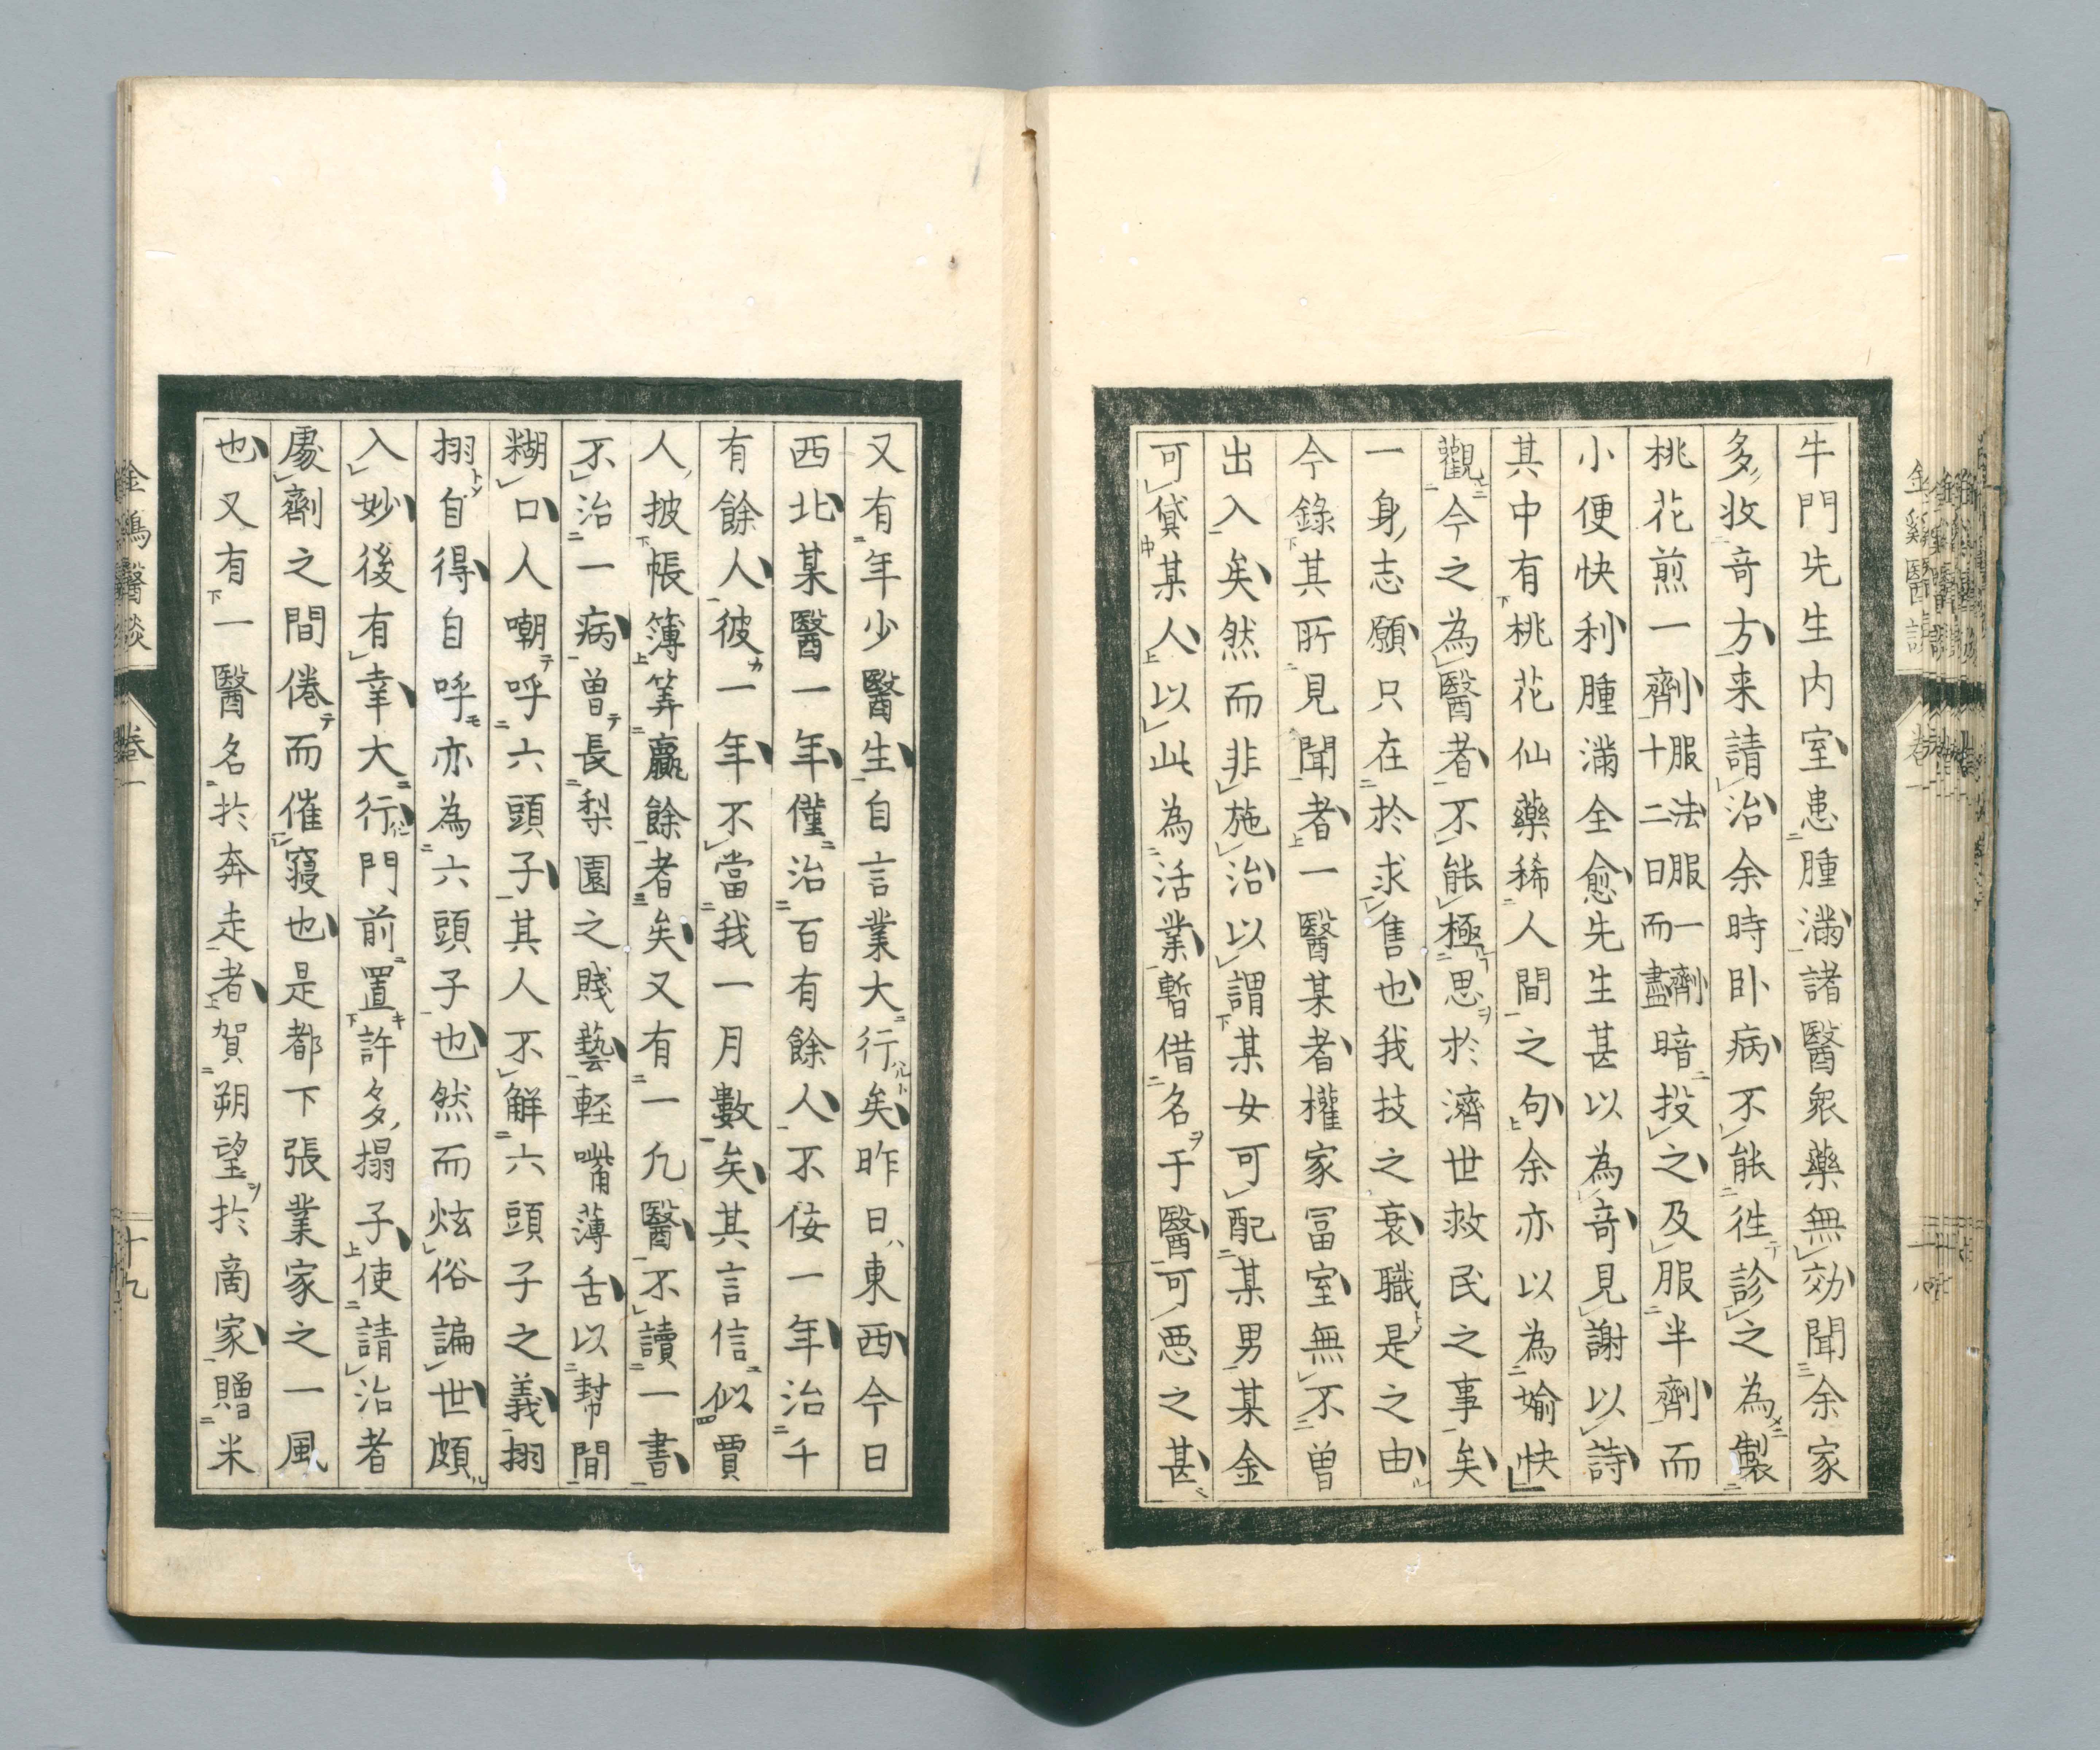 牛門先生内室患腫滿諸醫衆藥無効聞余家
多收奇方来請治余時卧病不能徃診之為製
桃花煎一劑服法服一劑十二日而盡暗投之及服半劑而
小便快利腫滿全愈先生甚以為奇見謝以詩
其中有桃花仙藥稀人間之句余亦以為愉快
觀今之為醫者不能極思於濟世救民之事矣
一身志願只在於求售也我技之衰職是之由
今錄其所見聞者一醫某者權家冨室無不曽
出入矣然而非施治以謂某女可配某男某金
可貸某人以此為活業暫借名于醫可悪之甚
又有年少醫生自言業大行矣昨日東西今日
西北某醫一年僅治百有餘人不佞一年治千
有餘人彼一年不當我一月數矣其言信似賈
人披帳簿筭贏餘者矣又有一凢醫不讀一書
不治一病曽長梨園之賤藝輕嘴薄舌以幇間
糊口人嘲呼六頭子其人不解六頭子之義栩
栩自得自呼亦為六頭子也然而炫俗謟世頗
入妙後有幸大行門前置許多搨子使請治者
處劑之間倦而催寢也是都下張業家之一風
也又有一醫名於奔走者賀朔望於啇家贈米
金鷄醫談
卷一
十九